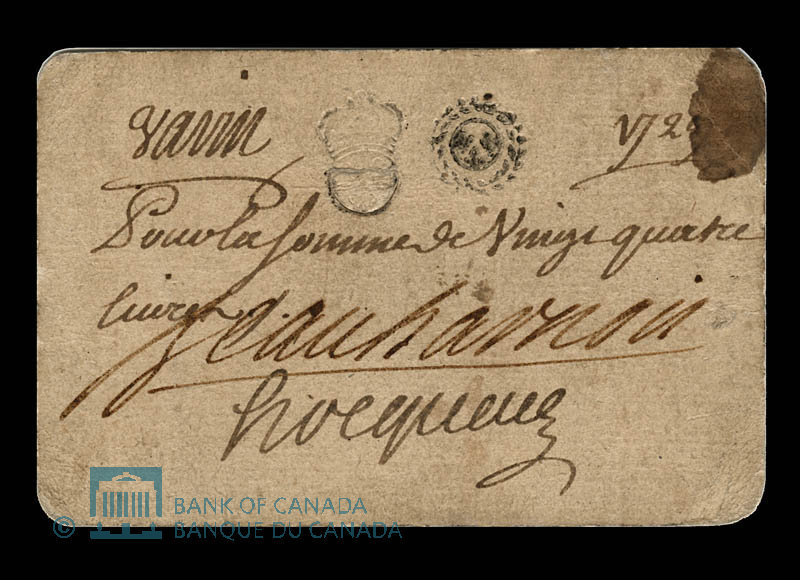 Varin 1729
Pour la somme de Vingt quatre
livres
Beauharnois
hocquart
© BANK OF CANADA
BANQUE DU CANADA